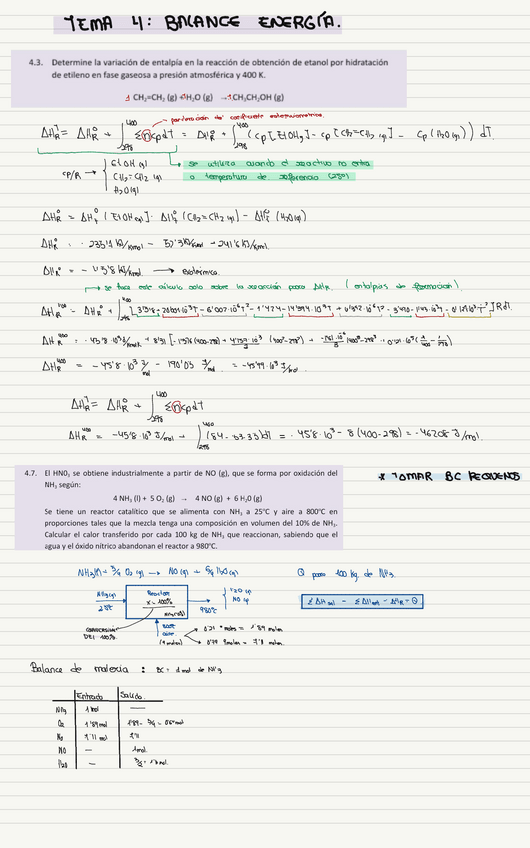 TEMA 4: BALANCE ENERGÍA.
4.3. Determine la variación de entalpía en la reacción de obtención de etanol por hidratación
de etileno en fase gaseosa a presión atmosférica y 400 K.
1 CH₂=CH₂ (g) + 1H₂O (g) → 1CH₃CH₂OH (g)
ponderación del coeficiente estequiométrico.
ΔH_R^T = ΔH_R^o + ∫₂₉₈⁴⁰⁰ Σ n cp dT = ΔH_R^o + ∫₂₉₈⁴⁰⁰ (cp [EtOH] - cp [CH₂=CH₂ (g)] - cp (H₂O (g))) dT.
cp/R → { EtOH (g)
CH₂=CH₂ (g)
H₂O (g)
se utiliza cuando el reactivo no entra
a temperatura de referencia (25º)
ΔH_R^o = ΔH_f^o (EtOH (g)) - ΔH_f^o (CH₂=CH₂ (g)) - ΔH_f^o (H₂O (g))
ΔH_R^o = - 235'1 kJ/kmol - 52'3 kJ/kmol + 241'6 kJ/kmol.
ΔH_R^o = - 45'8 kJ/kmol → Exotérmica.
se hace este cálculo solo sobre la reacción para ΔH_R. (entalpías de formación)
ΔH_R^400 = - 45'8 · 10³ J/mol - 190'03 J/mol = - 45'99 · 10³ J/mol.
ΔH_R^T = ΔH_R^o + ∫₂₉₈ Σ n cp dT
ΔH_R^400 = -45'8 · 10³ J/mol + ∫₂₉₈⁴⁰⁰ (84 - 53 - 35) dT = - 45'8 · 10³ - 8 (400 - 298) = - 46208 J/mol.
4.7. El HNO₃ se obtiene industrialmente a partir de NO (g), que se forma por oxidación del
NH₃ según:
4 NH₃ (l) + 5 O₂ (g) → 4 NO (g) + 6 H₂0 (g)
Se tiene un reactor catalítico que se alimenta con NH₃ a 25°C y aire a 800°C en
proporciones tales que la mezcla tenga una composición en volumen del 10% de NH₃.
Calcular el calor transferido por cada 100 kg de NH₃ que reaccionan, sabiendo que el
agua y el óxido nítrico abandonan el reactor a 980°C.
* TOMAR BC PEQUEÑOS
NH₃(l) + 5/4 O₂ (g) → NO (g) + 6/4 H₂O (g)
Q para 100 kg de NH₃.
NH₃ (g)
25ºC
Reactor
x = 100%
980ºC
{ H₂O (g)
NO (g)
ΣΔH sal - ΣΔH ent - ΔH_R = Q
CONVERSIÓN
DEL 100%.
800ºC
aire
(9 moles)
0'21 · 9 moles = 1'89 moles
0'79 · 9 moles = 7'11 moles
Balance de materia : BC = 1 mol de NH₃
Entrada Salida.
NH₃ 1 mol —
O₂ 1'89 mol 1'89 - 5/4 = 0'64 mol
N₂ 7'11 mol 7'11
NO — 1 mol
H₂O — 6/4 = 1'5 mol